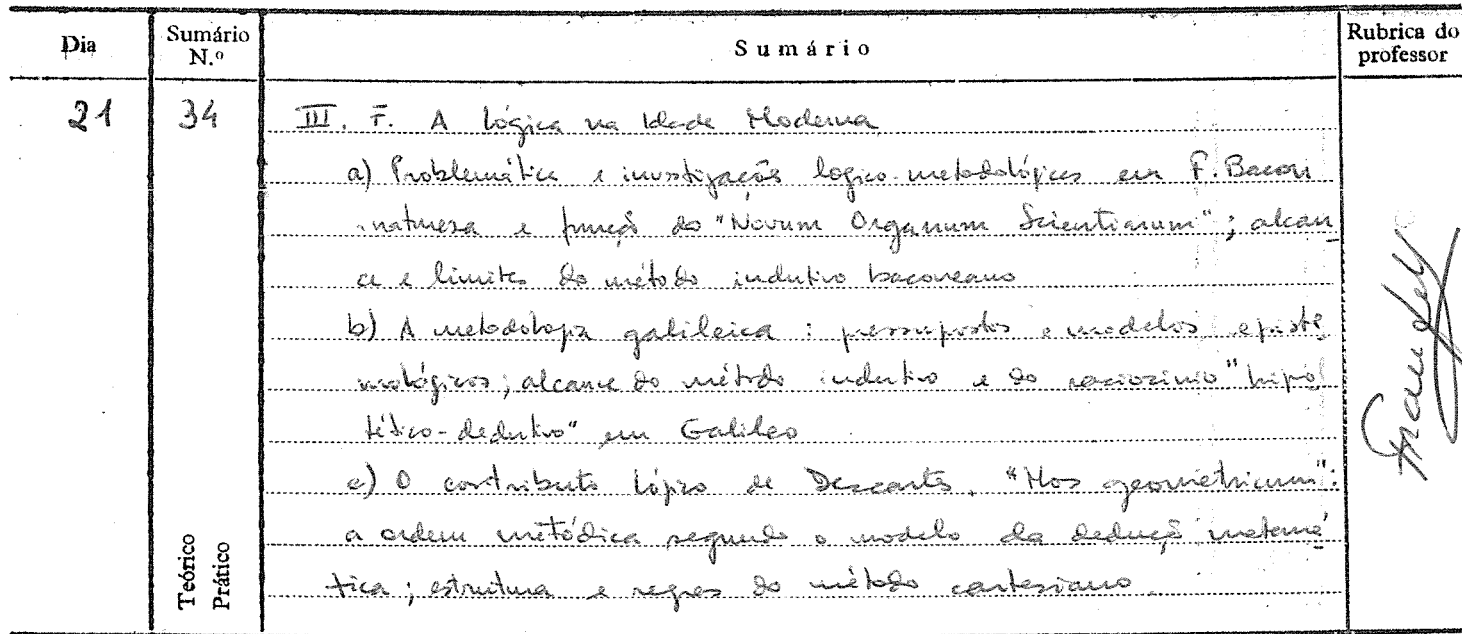 Dia
Sumário N.º
Sumário
Rubrica do professor
21
34
III. F. A lógica na Idade Moderna
a) Problemática e investigações logico-metodológicas em F. Bacon
natureza e função do "Novum Organum Scientiarum"; alcan
ce e limites do método indutivo baconeano
b) A metodologia galileica: pressupostos e modelos episte
mológicos; alcance do método indutivo e do raciocínio "hipo
tético-dedutivo" em Galileo
c) O contributo lógico de Descartes. "Mos geometricum":
a ordem metódica segundo o modelo da dedução matemá
tica; estrutura e regras do método cartesiano.
Teórico
Prático